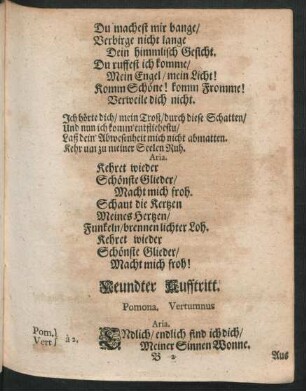 Du machest mir bange/
Verbirge nicht lange
Dein himmlisch Gesicht.
Du ruffest ich komme/
Mein Engel/ mein Licht!
Komm Schöne! komm Fromme!
Verweile dich nicht.
Ich hörte dich/ mein Trost/ durch diese Schatten/
Und nun ich komm entfliehestu/
Laß dein Abwesenheit mich nicht abmatten.
Kehr um zu meiner Seelen Ruh.
Aria.
Kehret wieder
Schönste Glieder/
Macht mich froh.
Schaut die Kertzen
Meines Hertzen/
Funkeln/ brennen lichter Loh.
Kehret wieder
Schönste Glieder/
Macht mich froh!
Neundter Aufftritt.
Pomona, Vertumnus
Aria.
Pom.} Vert} à 2,
ENdlich/ endlich find ich dich/
Meiner Sinnen Wonne.
B 2 Aus